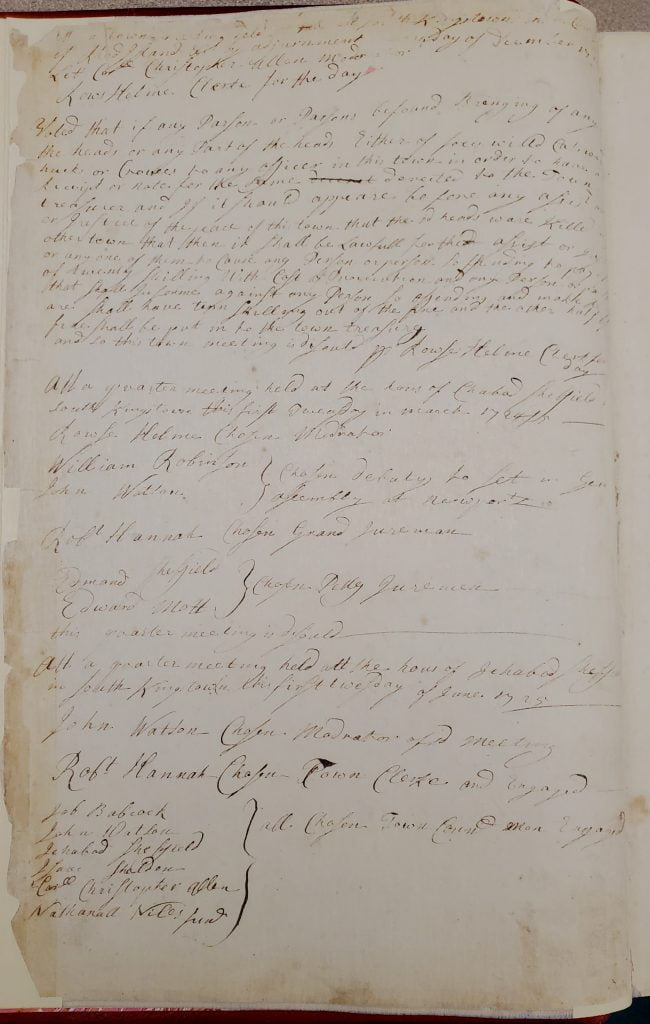 att a town meeting held
of Rhod Island by adjurnment day of December
Let Coll Christopher Allen Moder
Rows Helme Clerke for the day
Voted that if any Parson or Parsons be found Bringing of any
the heads or any Part of the heads Either of foxes willd Cats
or Crowes to any officer in this town in order to have a
receipt or note for the same derected to the Town
treasurer and if it should appeare before any asist
or Justice of the peace of this town that the sd heads ware Killed
other town that then it shall be Lawfull for thed asist or
or any one of them to Cause any Person or persons so to pay
of twenty shilling with Cost of and any Person or
that shall informe against any Person so ofending and make
are shall have tenn shillings out of the fine and the other half
fine shall be put in to the town treasury
and so this town meeting is disould Rowse Helme Clerk for
day
Att a quarter meeting held at the hous of Sheffield
South Kingstown this first Tuesday in march 1724/5
Rowse Helme Chosen Modrator
William Robinson Chosen debatys to set in Gen
John Watson assembly at newport
Robt Hannah Chosen Grand Jureman
Edmand Sheffield Chosen Petty Juremen
Edward Mott
this quarter meeting is disould
Att a quarter meeting held att the hous of Jehabod Sheff
in South Kingstown this first tuesday of June 1725
John Watson Chosen Modrator of sd meeting
Robt Hannah Chosen Town Clerke and Engaged
Job Babcock
John Watson all Chosen Town Councl men Engaged
Jehabod Sheffield
Isaac Sheldon
Coll Christopter Allen
Nathanall Niles Junr